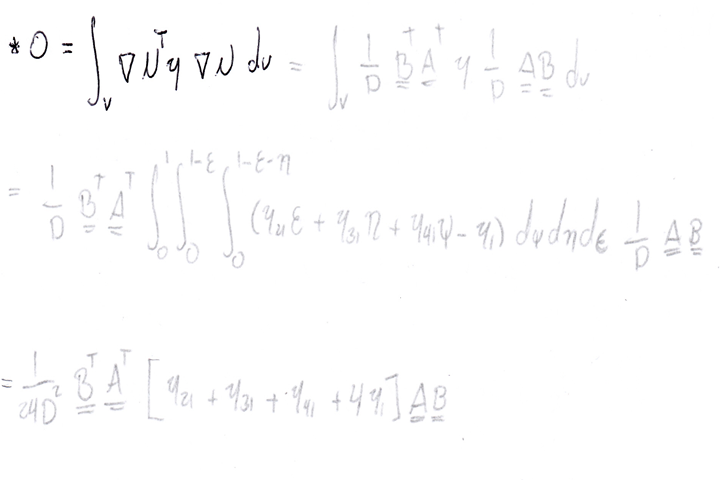 * O = ∫_V ∇N^T y ∇N dv = ∫_V 1/D B^T A^T y 1/D A B dv
= 1/D B^T A^T ∫_0^1 ∫_0^{1-ε} ∫_0^{1-ε-η} (y_21 ε + y_31 η + y_41 ψ - y_1) dψ dη dε 1/D A B
= 1/24D^2 B^T A^T [y_21 + y_31 + y_41 + 4y_1] A B